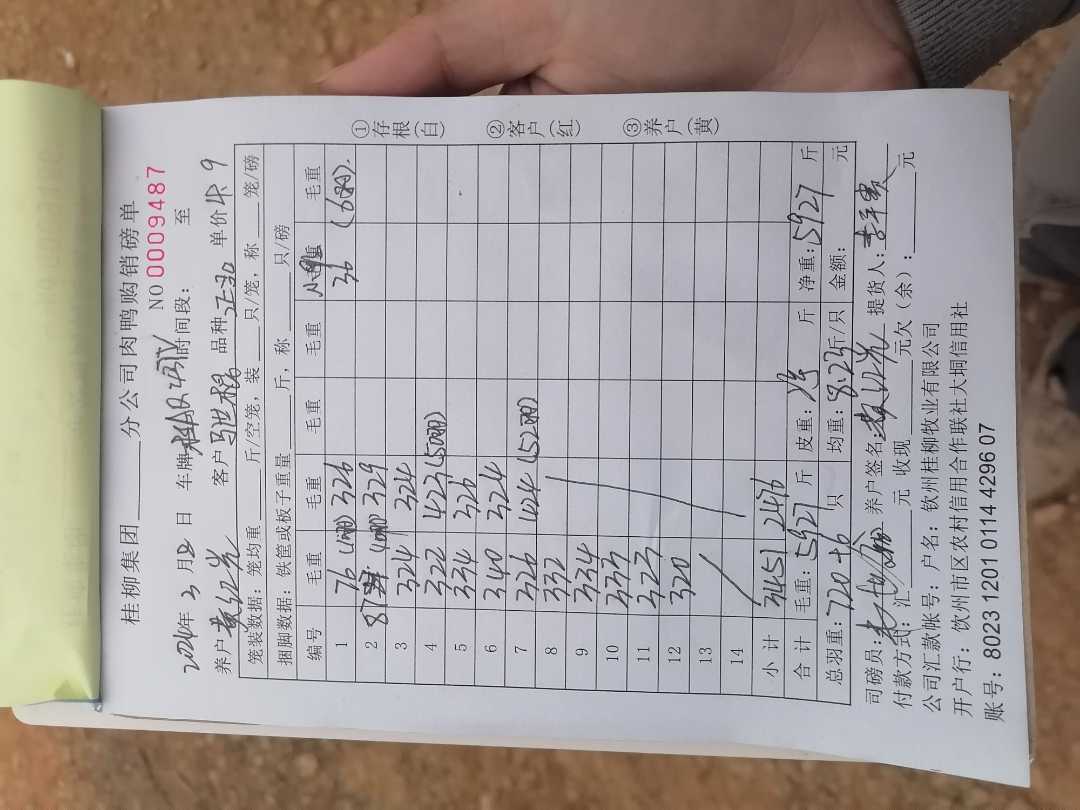 桂柳集团______分公司肉鸭购销磅单
NO 0009487
2024年 3月2日 车牌 时间段: 至
养户 黄红光 客户 品种 单价 4.9
笼装数据: 笼均重____斤/空笼, 装____只/笼, 称____笼/磅
捆脚数据: 铁筐或板子重量____斤, 称____只/磅
编号 毛重 毛重 毛重 毛重 毛重 毛重
1 76 (4只) 326 36 (6只).
2 329
3 324 324
4 322 423 (50只)
5 334 326
6 340 324
7 326 424 (52只)
8 332
9 334
10 333
11 323
12 320
13
14
小计 3451 2476
合计 毛重: 5927 斤 皮重: 斤 净重: 5927 斤
总羽重: 720+6 只 均重: 8.23 斤/只 金额: 元
司磅员: 养户签名: 黄红光 提货人:
付款方式: 汇____元 收现____元欠(余): ____元
公司汇款帐号: 户名: 钦州桂柳牧业有限公司
开户行: 钦州市区农村信用合作联社大垌信用社
账号: 8023 1201 0114 4296 07
①存根(白)
②客户(红)
③养户(黄)